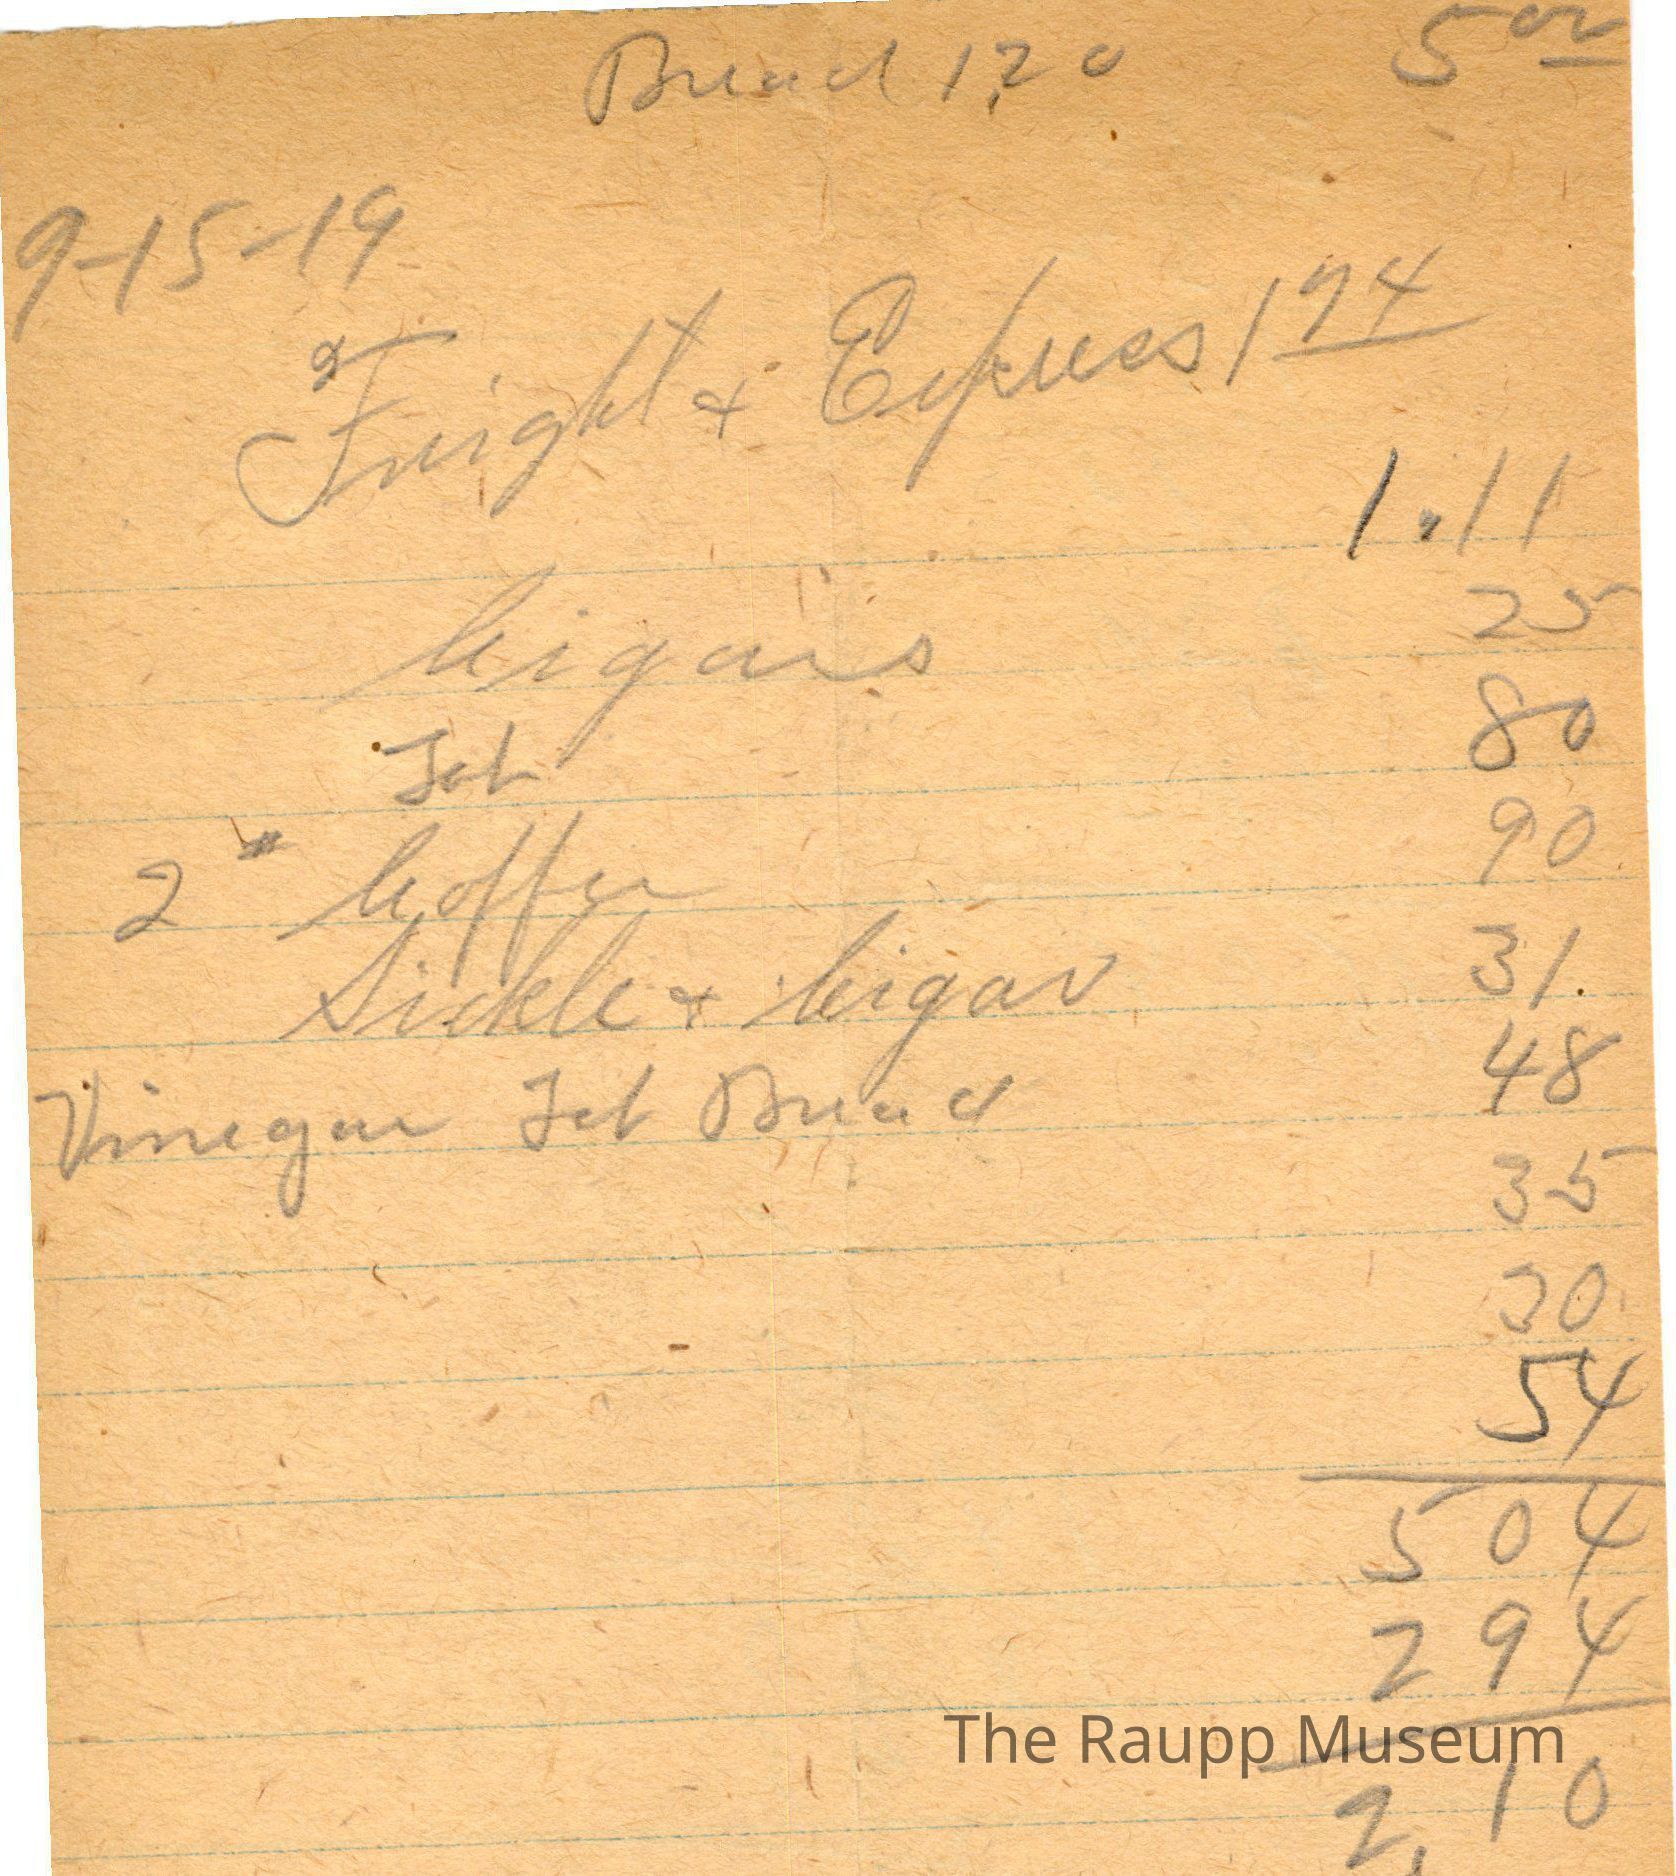 Bread 1,20 5 00
9-15-19
Freight & Express 1 74
1.11
Cigars 25
Tob 80
2 # Coffee 90
Sickle & Cigar 31
Vinegar Tob Bread 48
35
30
54
504
294
The Raupp Museum
2,10